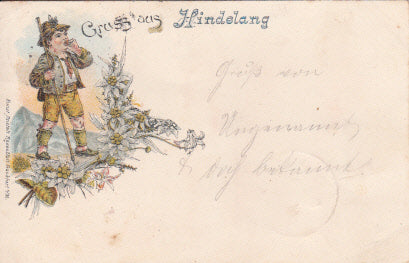 Gruss aus Hindelang
Gruß von
Ungenannt
& doch bekannt.